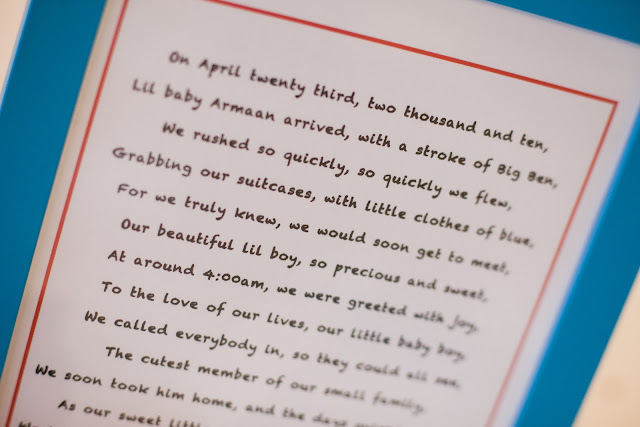 On April twenty third, two thousand and ten,
Lil baby Armaan arrived, with a stroke of Big Ben,
We rushed so quickly, so quickly we flew,
Grabbing our suitcases, with little clothes of blue.
For we truly knew, we would soon get to meet,
Our beautiful lil boy, so precious and sweet,
At around 4:00am, we were greeted with joy,
To the love of our lives, our little baby boy.
We called everybody in, so they could all see.
The cutest member of our small family.
We soon took him home, and the days
As our sweet